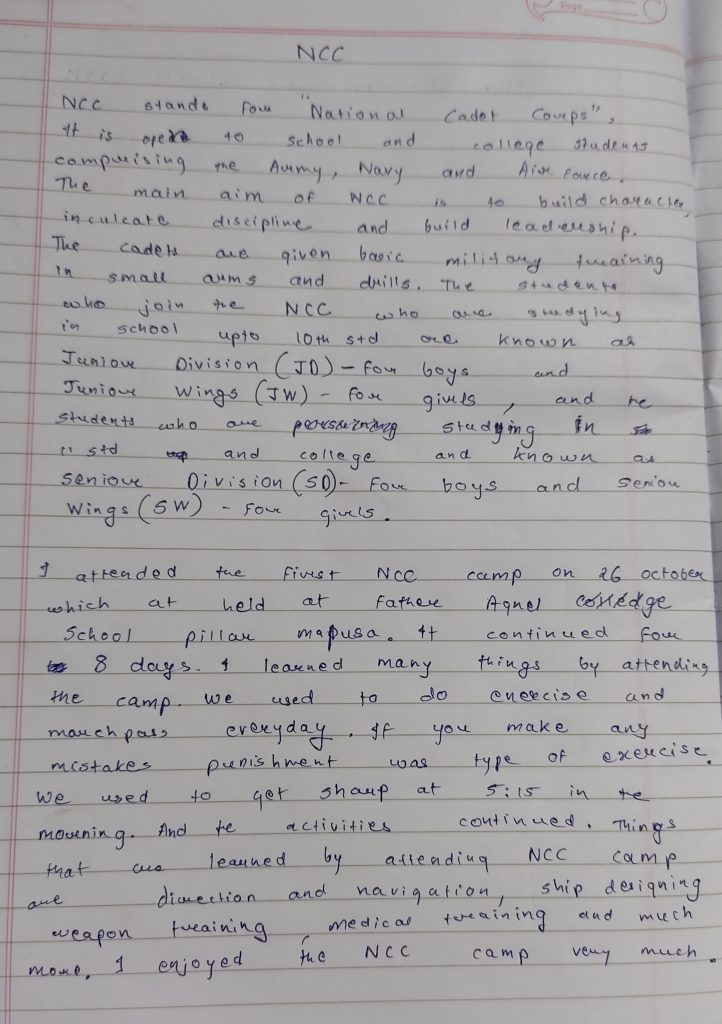 Page
NCC
NCC stands for "National Cadet Corps",
It is open to school and college students
comprising the Army, Navy and Air force.
The main aim of NCC is to build character,
inculcate discipline and build leadership.
The cadets are given basic military training
in small arms and drills. The students
who join the NCC who are studying
in school upto 10th std are known as
Junior Division (JD) - for boys and
Junior Wings (JW) - for girls, and he
students who are studying in
11 std and college and known as
Senior Division (SD) - for boys and Senior
Wings (SW) - for girls.
I attended the first NCC camp on 26 october
which at held at father Agnel
School pillar mapusa. It continued for
8 days. I learned many things by attending
the camp. we used to do exercise and
marchpass everyday. If you make any
mistakes punishment was type of exercise.
We used to get sharp at 5:15 in te
morning. And te activities continued. Things
that are learned by attending NCC camp
are direction and navigation, ship designing
weapon training, medical training and much
more. I enjoyed the NCC camp very much.